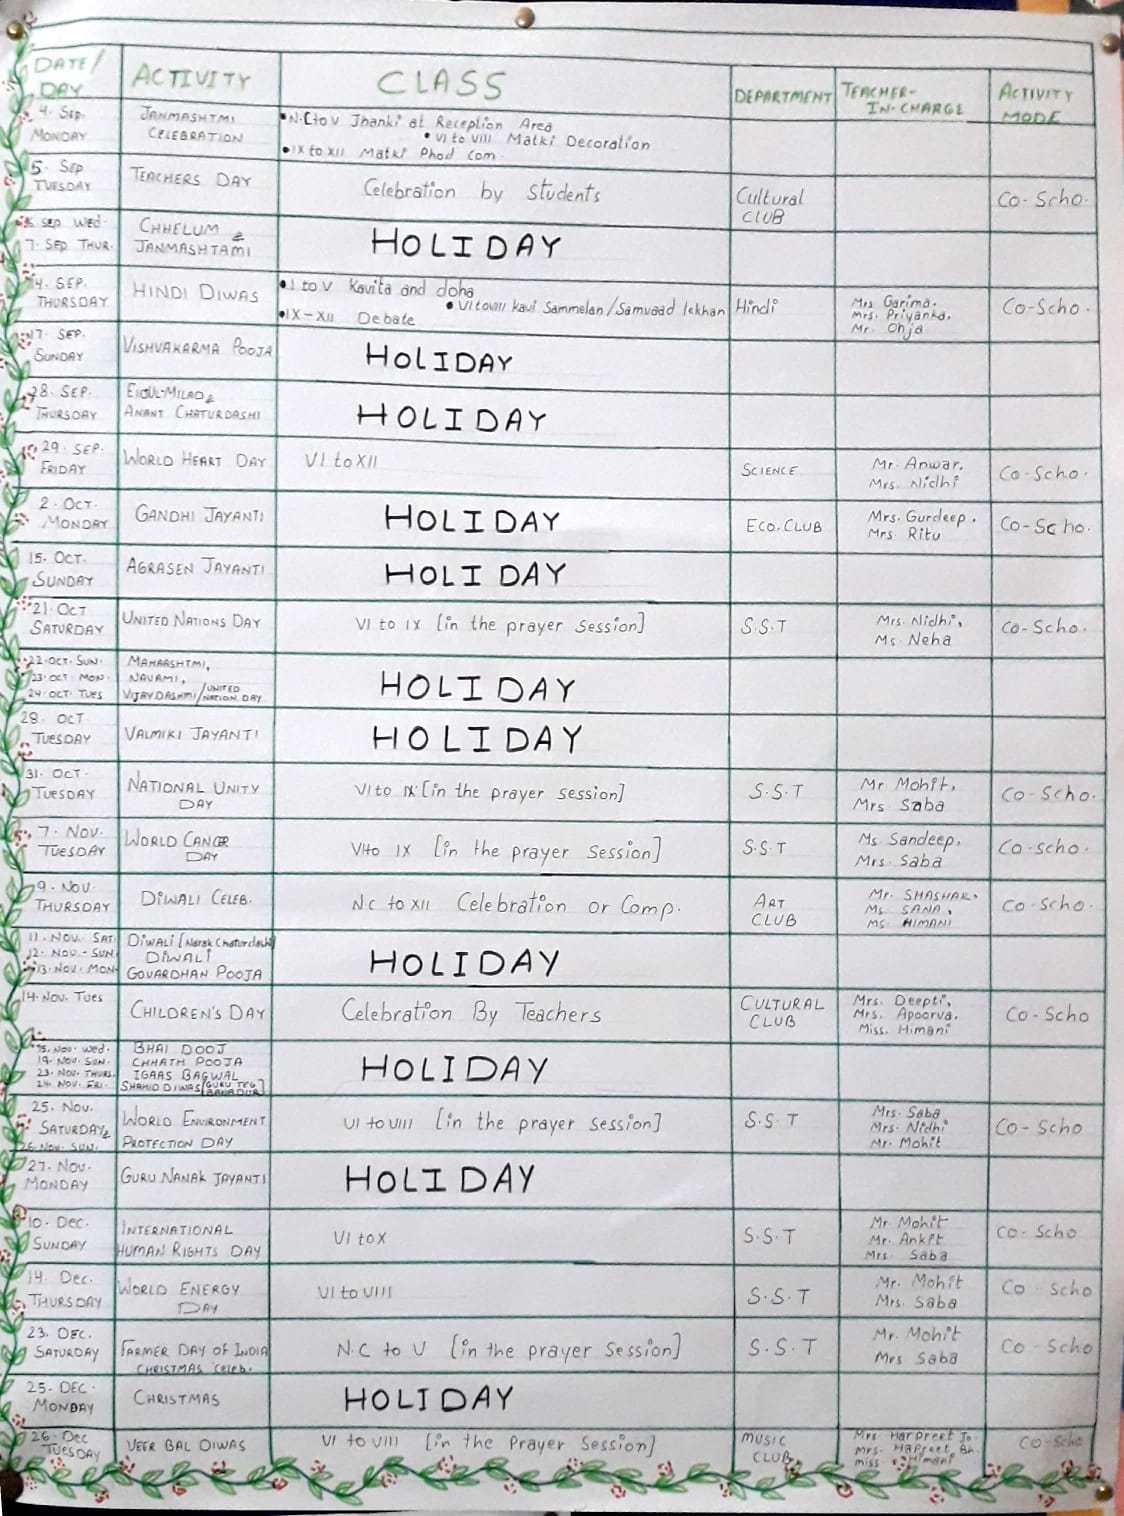 DATE/ DAY ACTIVITY CLASS DEPARTMENT TEACHER-IN-CHARGE ACTIVITY MODE
4. Sep. MONDAY JANMASHTMI CELEBRATION
•N.C to V Jhanki at Reception Area
•VI to VIII Matki Decoration
•IX to XII Matki Phod Com.
5. Sep TUESDAY TEACHERS DAY Celebration by Students Cultural CLUB Co-Scho.
6 SEP WED. 7. SEP THUR. CHHELUM & JANMASHTAMI HOLIDAY
14. SEP. THURSDAY HINDI DIWAS
•I to V Kavita and doha
•VI to VIII kavi Sammelan/Samvaad lekhan Hindi Mrs Garima, Mrs. Priyanka, Mr. Ohja Co-Scho.
•IX-XII Debate
17. SEP. SUNDAY VISHVAKARMA POOJA HOLIDAY
28. SEP. THURSDAY EIDUL-MILAD & ANANT CHATURDASHI HOLIDAY
29. SEP. FRIDAY WORLD HEART DAY VI to XII SCIENCE Mr. Anwar, Mrs. Nidhi Co-Scho.
2. OCT. MONDAY GANDHI JAYANTI HOLIDAY ECO.CLUB Mrs. Gurdeep, Mrs Ritu Co-Scho.
15. OCT. SUNDAY AGRASEN JAYANTI HOLIDAY
21. OCT SATURDAY UNITED NATIONS DAY VI to IX [in the prayer Session] S.S.T Mrs. Nidhi, Ms. Neha Co-Scho.
22.OCT. SUN. 23.OCT. MON. 24.OCT. TUES MAHAASHTMI, NAVAMI, VIJAYDASHMI/UNITED NATION DAY HOLIDAY
28. OCT TUESDAY VALMIKI JAYANTI HOLIDAY
31. OCT. TUESDAY NATIONAL UNITY DAY VI to IX [in the prayer session] S.S.T Mr Mohit, Mrs Saba Co-Scho.
7. NOV. TUESDAY WORLD CANCER DAY VI to IX [in the prayer Session] S.S.T Ms Sandeep, Mrs. Saba Co-Scho.
9. NOV. THURSDAY DIWALI CELEB. N.C to XII Celebration or Comp. ART CLUB Mr. SHASHAK, Ms. SANA, MS. HIMANI Co-Scho.
11. NOV. SAT. 12. NOV - SUN. 13. NOV. MON. DIWALI [Narak Chaturdashi] DIWALI GOVARDHAN POOJA HOLIDAY
14. NOV. TUES CHILDREN'S DAY Celebration By Teachers CULTURAL CLUB Mrs. Deepti, Mrs. Apoorva, Miss. Himani Co-Scho
15. NOV. Wed. 19. NOV. SUN. 23. NOV. THURS. 24. NOV. FRI. BHAI DOOJ CHHATH POOJA IGAAS BAGWAL SHAHID DIWAS [GURU TEG BAHADUR] HOLIDAY
25. NOV. SATURDAY & 26. NOV. SUN. WORLD ENVIRONMENT PROTECTION DAY VI to VIII [in the prayer Session] S.S.T Mrs. Saba Mrs. Nidhi Mr. Mohit Co-Scho
27. NOV. MONDAY GURU NANAK JAYANTI HOLIDAY
10. Dec. SUNDAY INTERNATIONAL HUMAN RIGHTS DAY VI to X S.S.T Mr. Mohit Mr. Ankit Mrs. Saba Co-Scho
14. Dec. THURSDAY WORLD ENERGY DAY VI to VIII S.S.T Mr. Mohit Mrs. Saba Co-Scho
23. DEC. SATURDAY FARMER DAY OF INDIA CHRISTMAS Celeb. N.C to V [in the prayer Session] S.S.T Mr. Mohit Mrs Saba Co-Scho
25. DEC. MONDAY CHRISTMAS HOLIDAY
26. Dec TUESDAY VEER BAL DIWAS VI to VIII [in the Prayer Session] MUSIC CLUB Mrs. Harpreet Jo. Mrs. Hapreet Bh. miss Himani Co-Scho